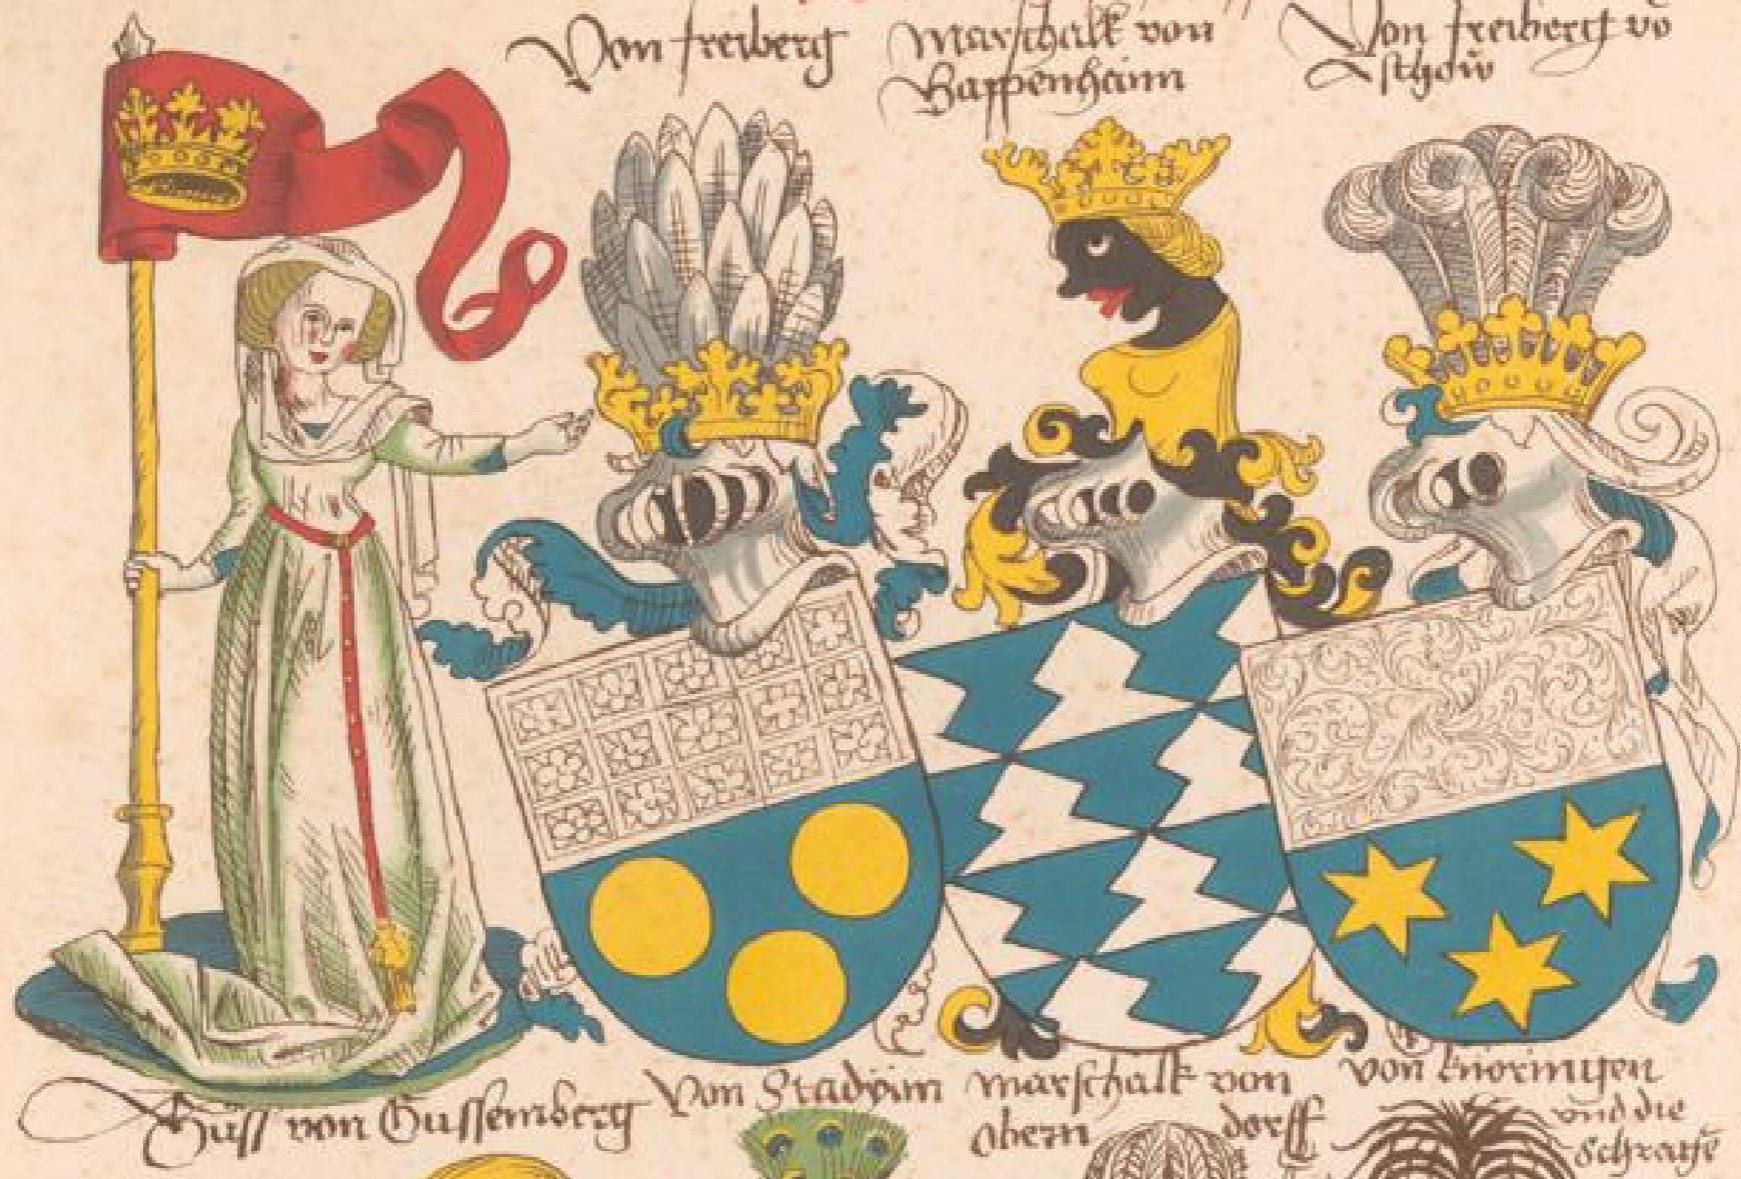 Von freiberg
Marschalk von
Bappenhaim
Von freiberg vo
Güss von Güssemberg
Von Stadium
marschalk von
obern dorff
von knöringen
vnd die